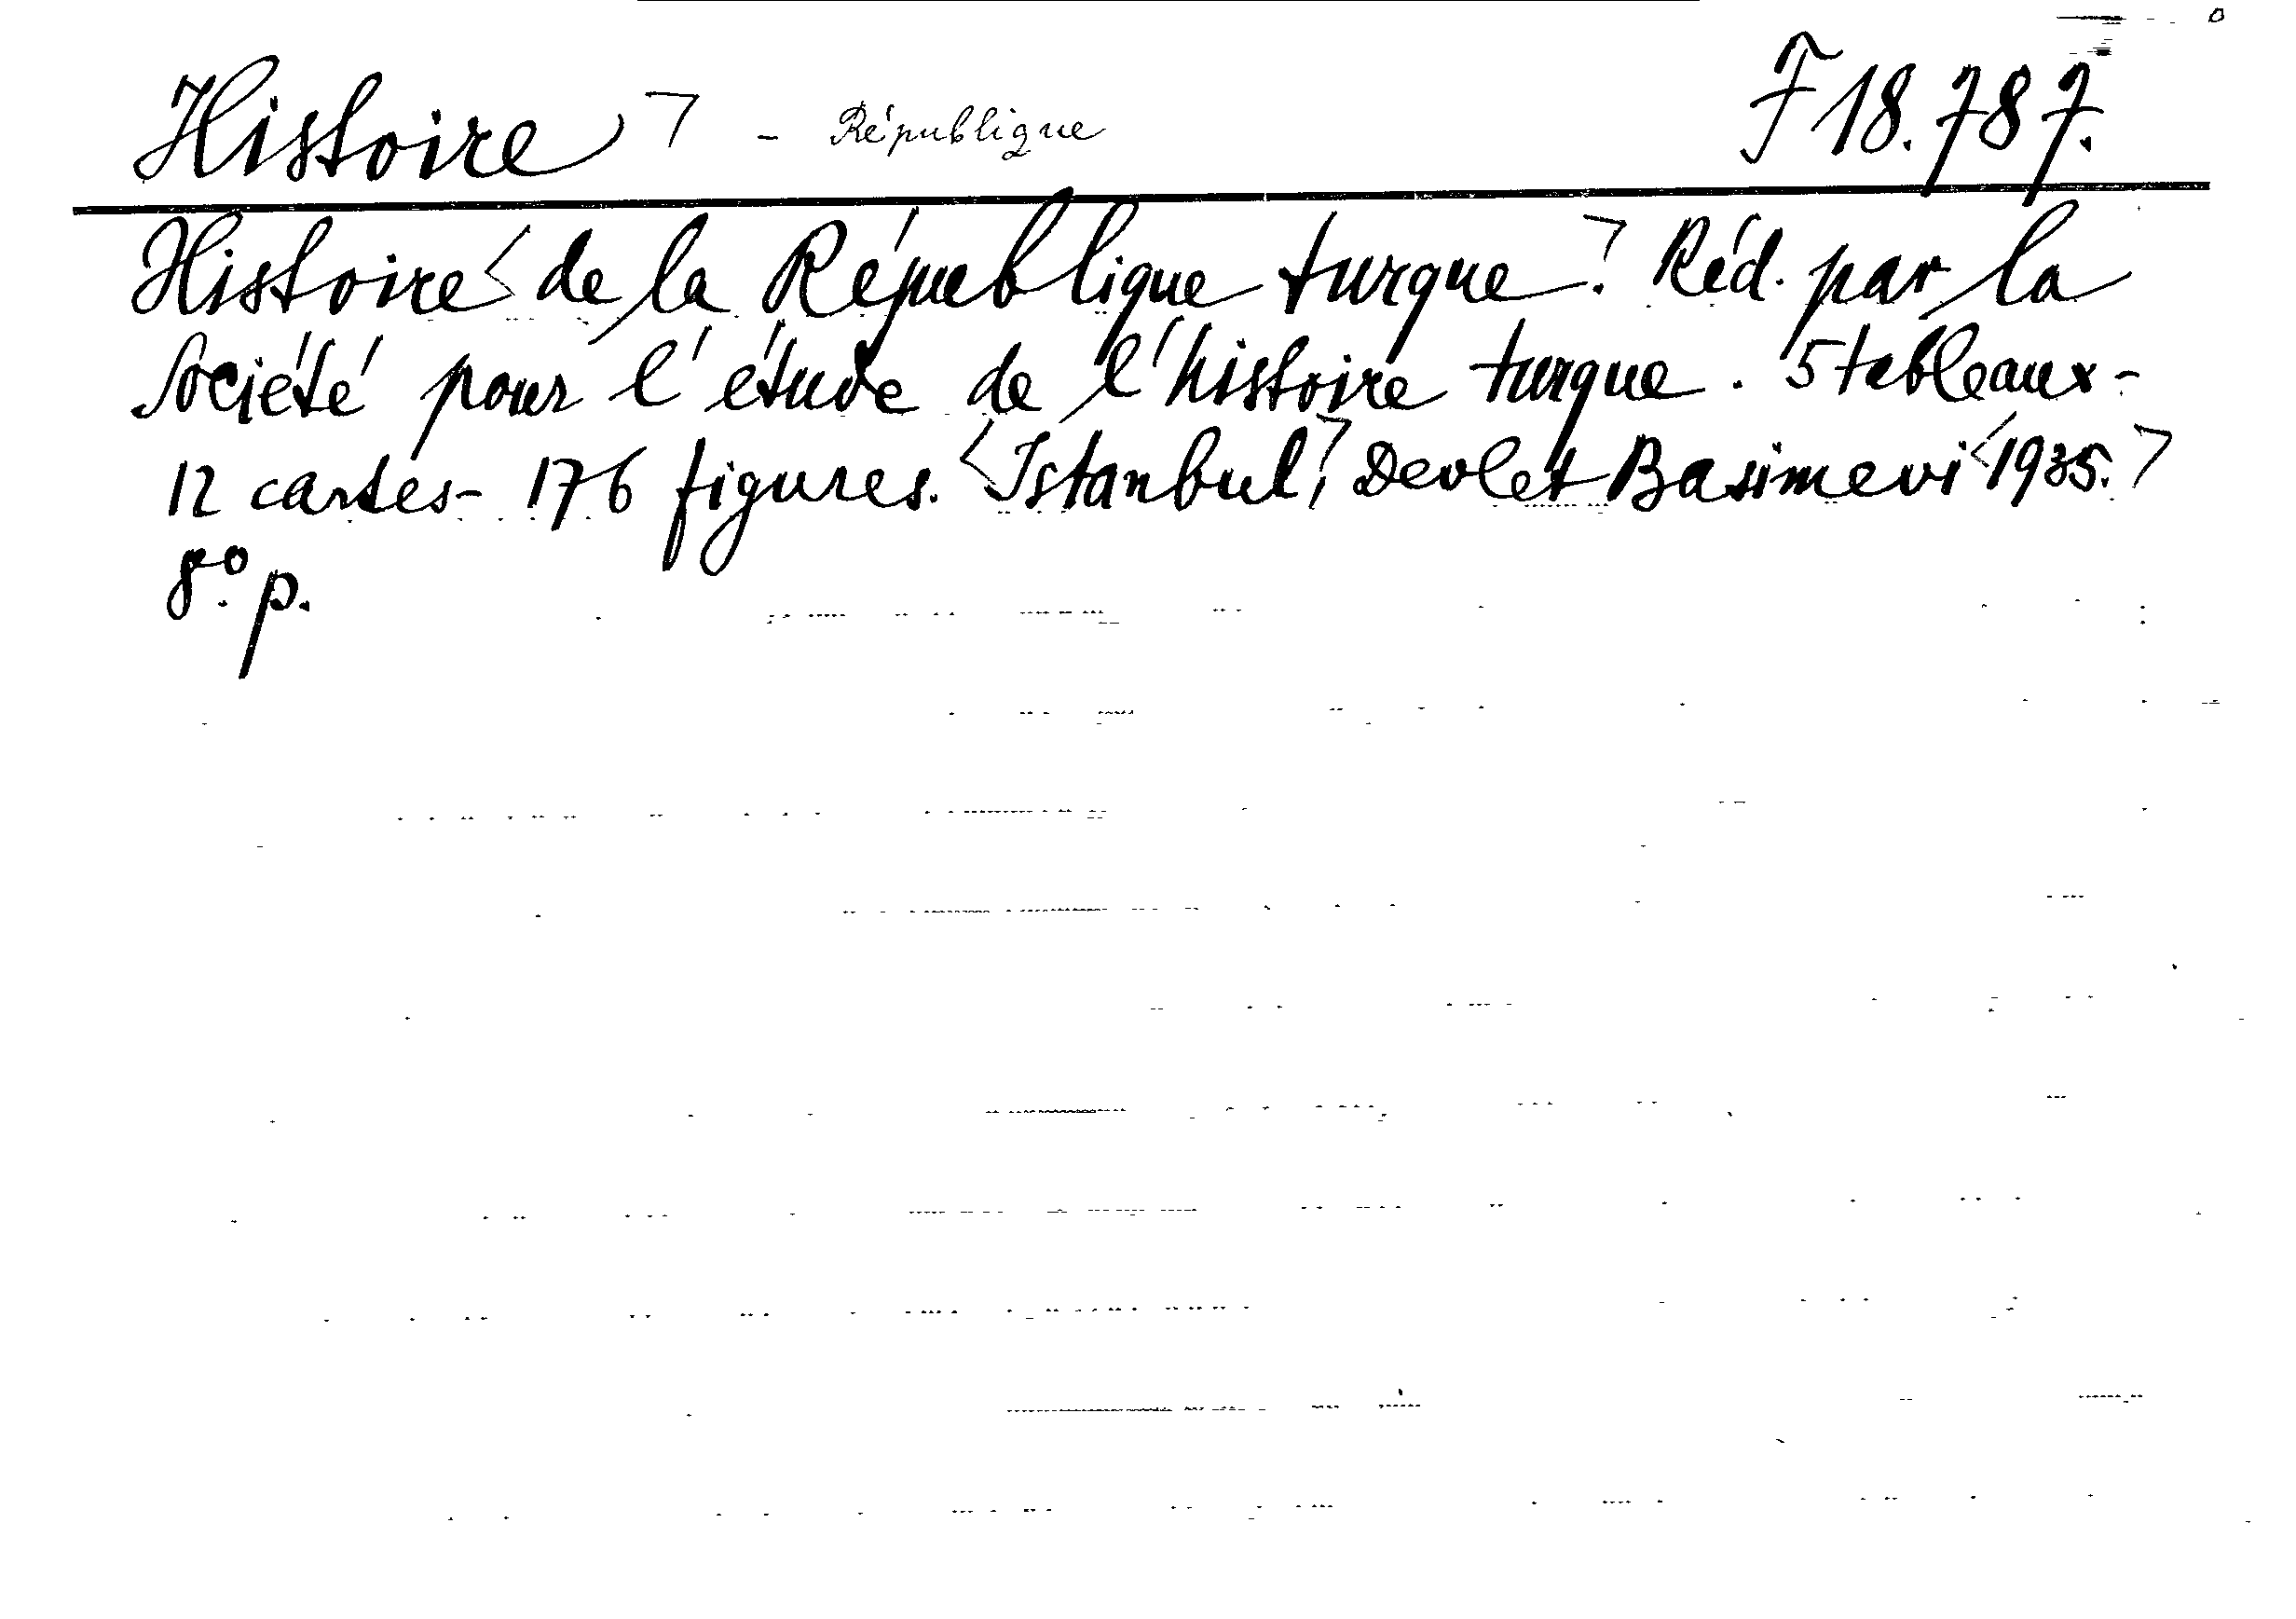 Histoire ⏋ - République F 18.787.
Histoire < de la République turque. ⏋ Réd. par la
Société pour l'étude de l'histoire turque. 5 tableaux-
12 cartes- 176 figures. < Istanbul, ⏋ Devlet Basimevi < 1935. ⏋
8º. p.